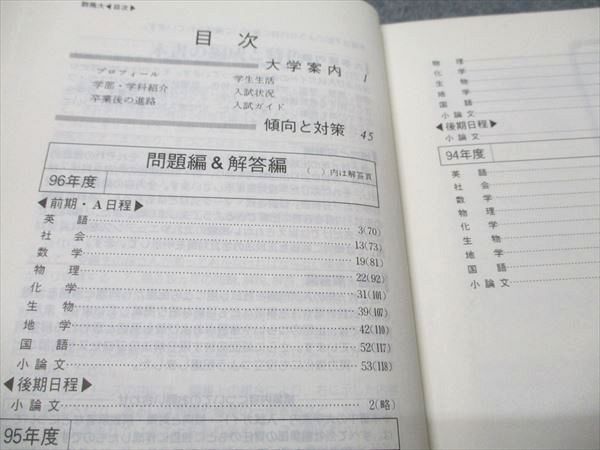 目次
大学案内 1
プロフィール 学生生活
学部・学科紹介 入試状況
卒業後の進路 入試ガイド
傾向と対策 45
問題編&解答編 ( )内は解答頁
96年度
◀前期・A日程▶
英語 3(70)
社会 13(73)
数学 19(81)
物理 22(92)
化学 31(101)
生物 39(107)
地学 42(110)
国語 52(117)
小論文 53(118)
◀後期日程▶
小論文 2(略)
95年度
物理
化学
生物
地学
国語
小論文
◀後期日程▶
小論文
94年度
英語
社会
数学
物理
化学
生物
地学
国語
小論文